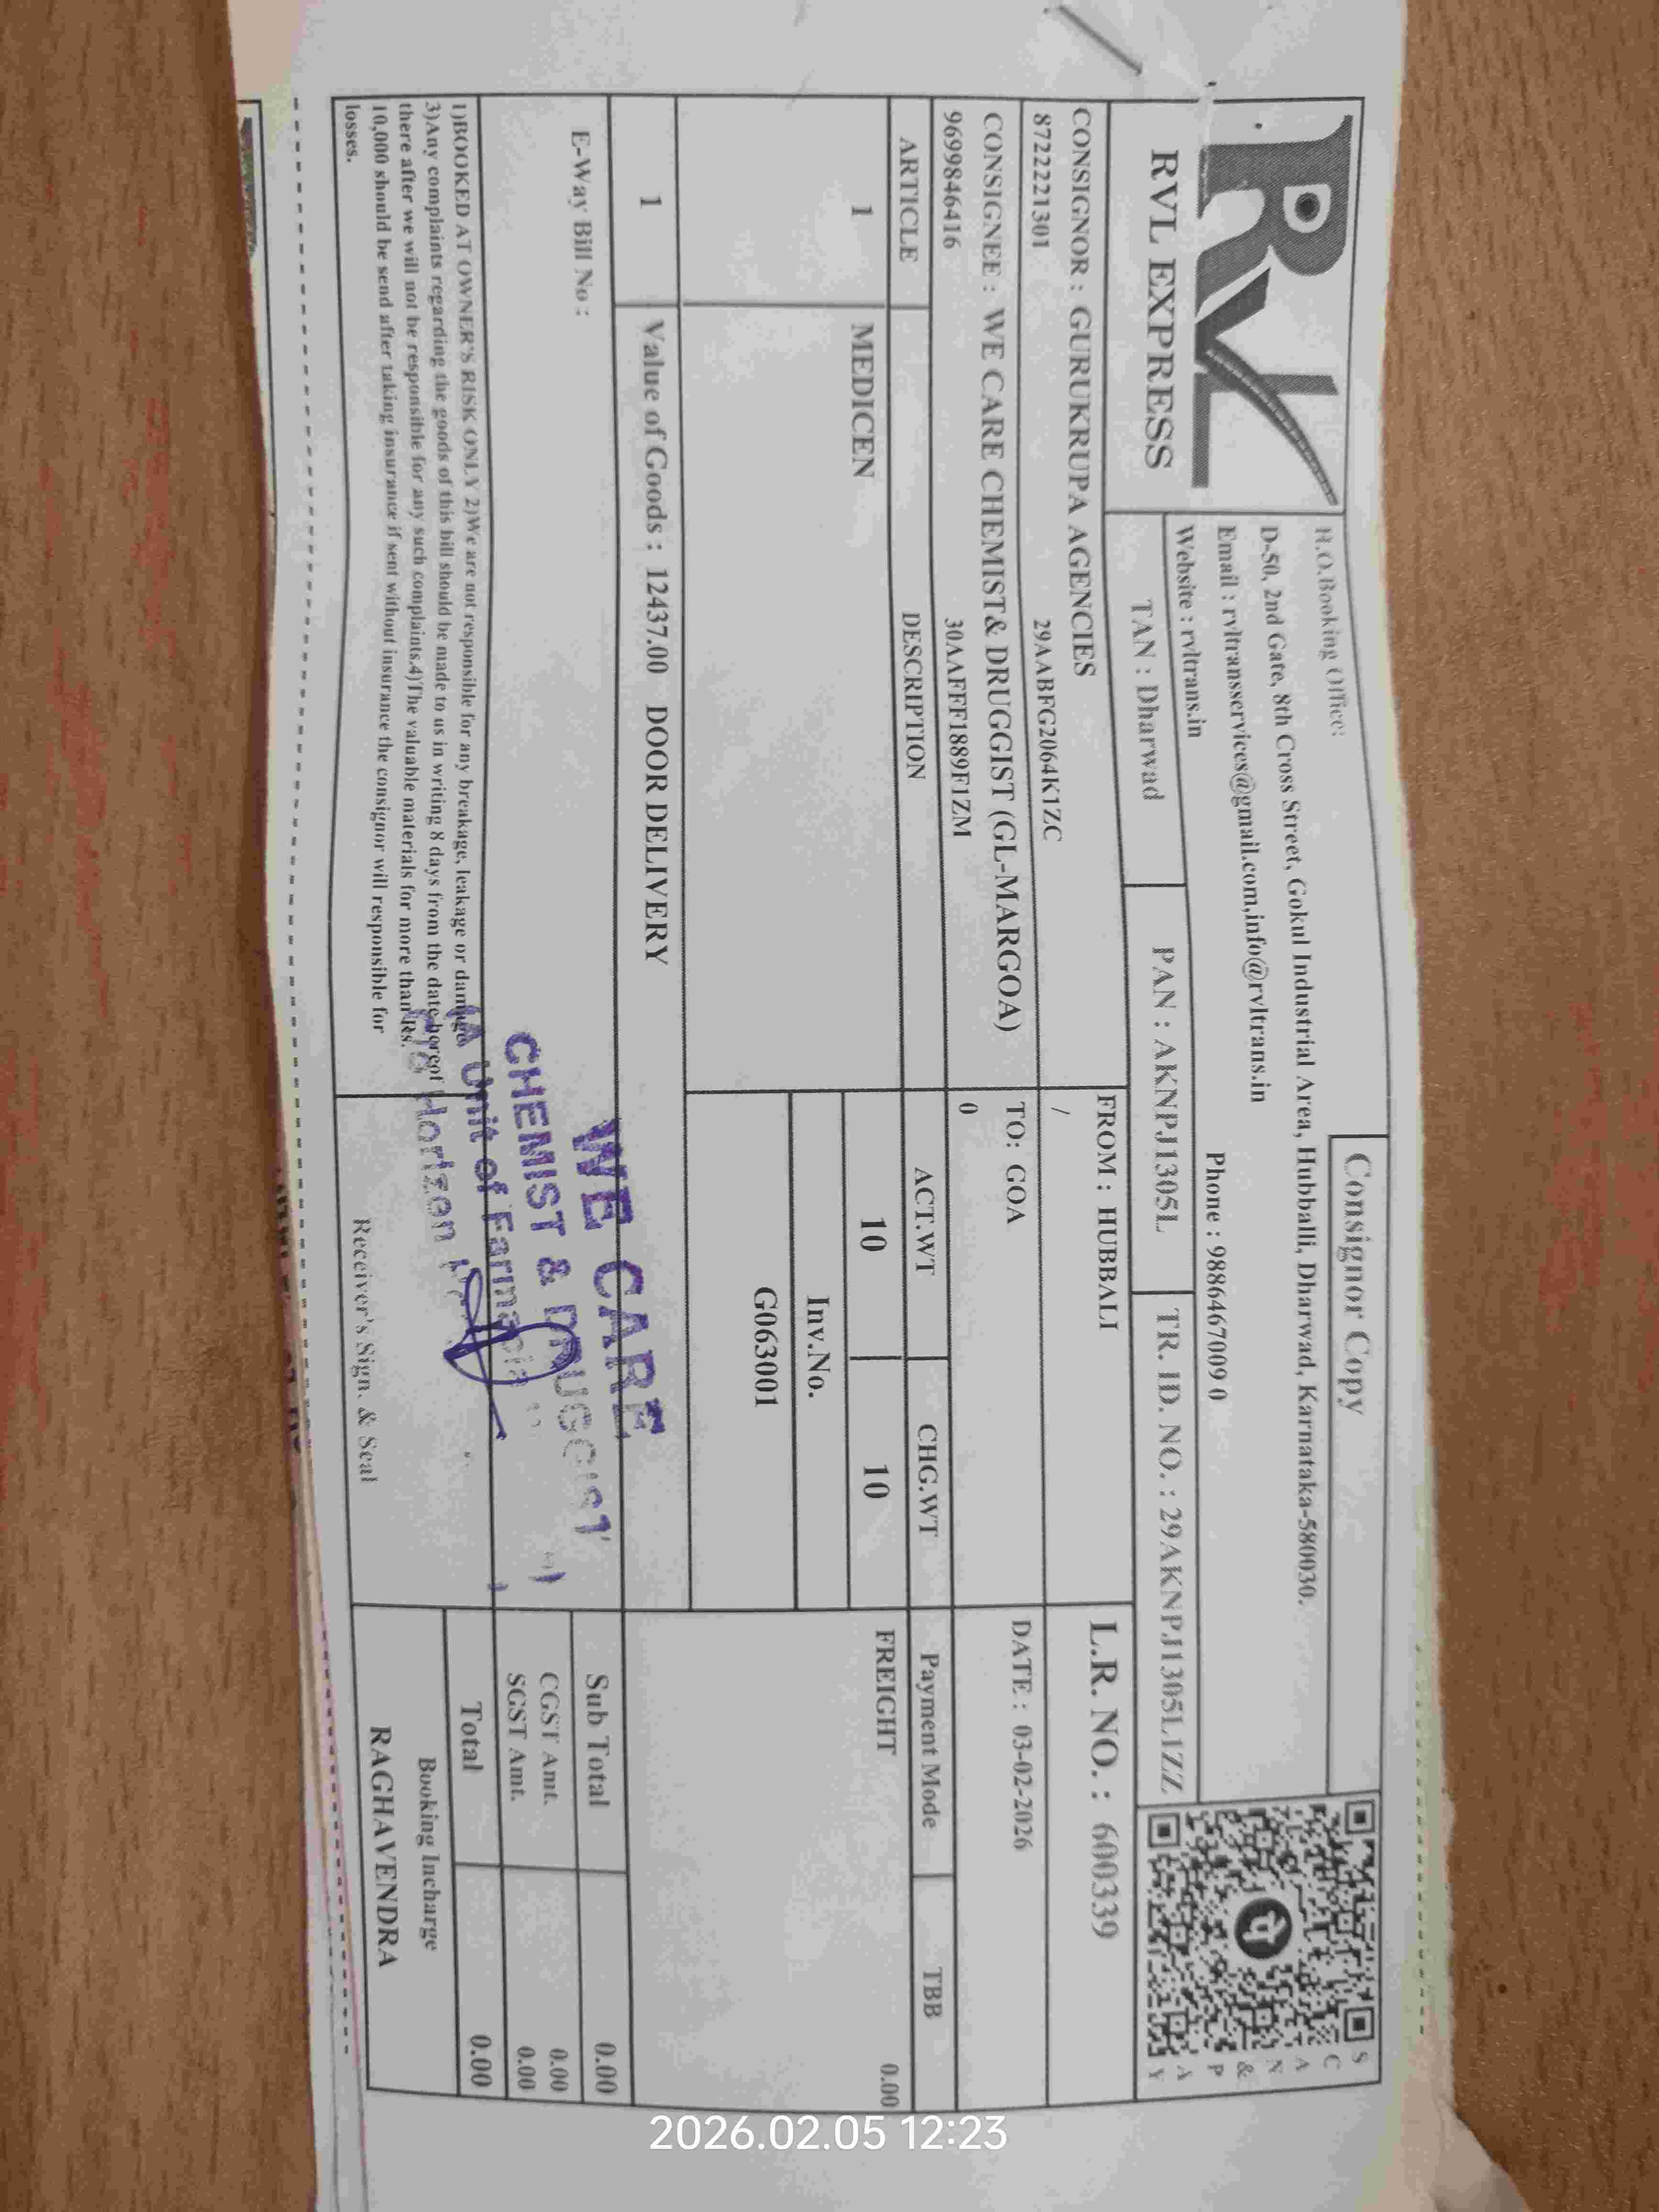 RVL EXPRESS
Consignor Copy
H.O.Booking Office:
D-50, 2nd Gate, 8th Cross Street, Gokul Industrial Area, Hubballi, Dharwad, Karnataka-580030.
Email : rvltransservices@gmail.com,info@rvltrans.in
Phone : 9886467009 0
Website : rvltrans.in
SCAN & PAY
TAN : Dharwad
PAN : AKNPJ1305L
TR. ID. NO. : 29AKNPJ1305L1ZZ
CONSIGNOR : GURUKRUPA AGENCIES
8722221301 29AABFG2064K1ZC
FROM : HUBBALI
/
L.R. NO. : 600339
CONSIGNEE : WE CARE CHEMIST& DRUGGIST (GL-MARGOA)
9699846416 30AAFFF1889F1ZM
TO: GOA
0
DATE : 03-02-2026
ARTICLE DESCRIPTION ACT.WT CHG.WT Payment Mode TBB
1 MEDICEN 10 10 FREIGHT 0.00
Inv.No.
G063001
1 Value of Goods : 12437.00 DOOR DELIVERY
E-Way Bill No :
Sub Total 0.00
CGST Amt. 0.00
SGST Amt. 0.00
Total 0.00
WE CARE
CHEMIST & DRUGGIST
(A Unit of
Horizon
1)BOOKED AT OWNER'S RISK ONLY 2)We are not responsible for any breakage, leakage or damage
3)Any complaints regarding the goods of this bill should be made to us in writing 8 days from the date hereof
there after we will not be responsible for any such complaints.4)The valuable materials for more than Rs.
10,000 should be send after taking insurance if sent without insurance the consignor will responsible for
losses.
Receiver's Sign. & Seal
Booking Incharge
RAGHAVENDRA
2026.02.05 12:23